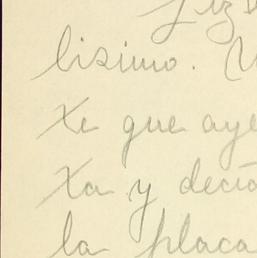 lisimo.
Xe que aye
Xa y decia
la placa